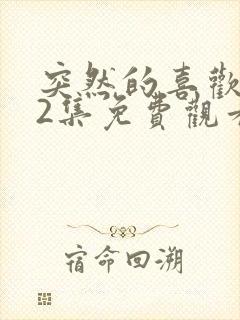 突然的喜歡
2集免費觀看
宿命回溯